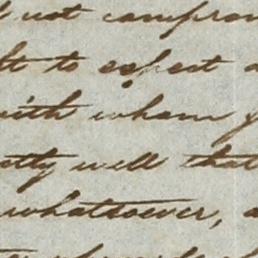 not comprom
to expect a
with whom y
ctly well that
whatsoever, a